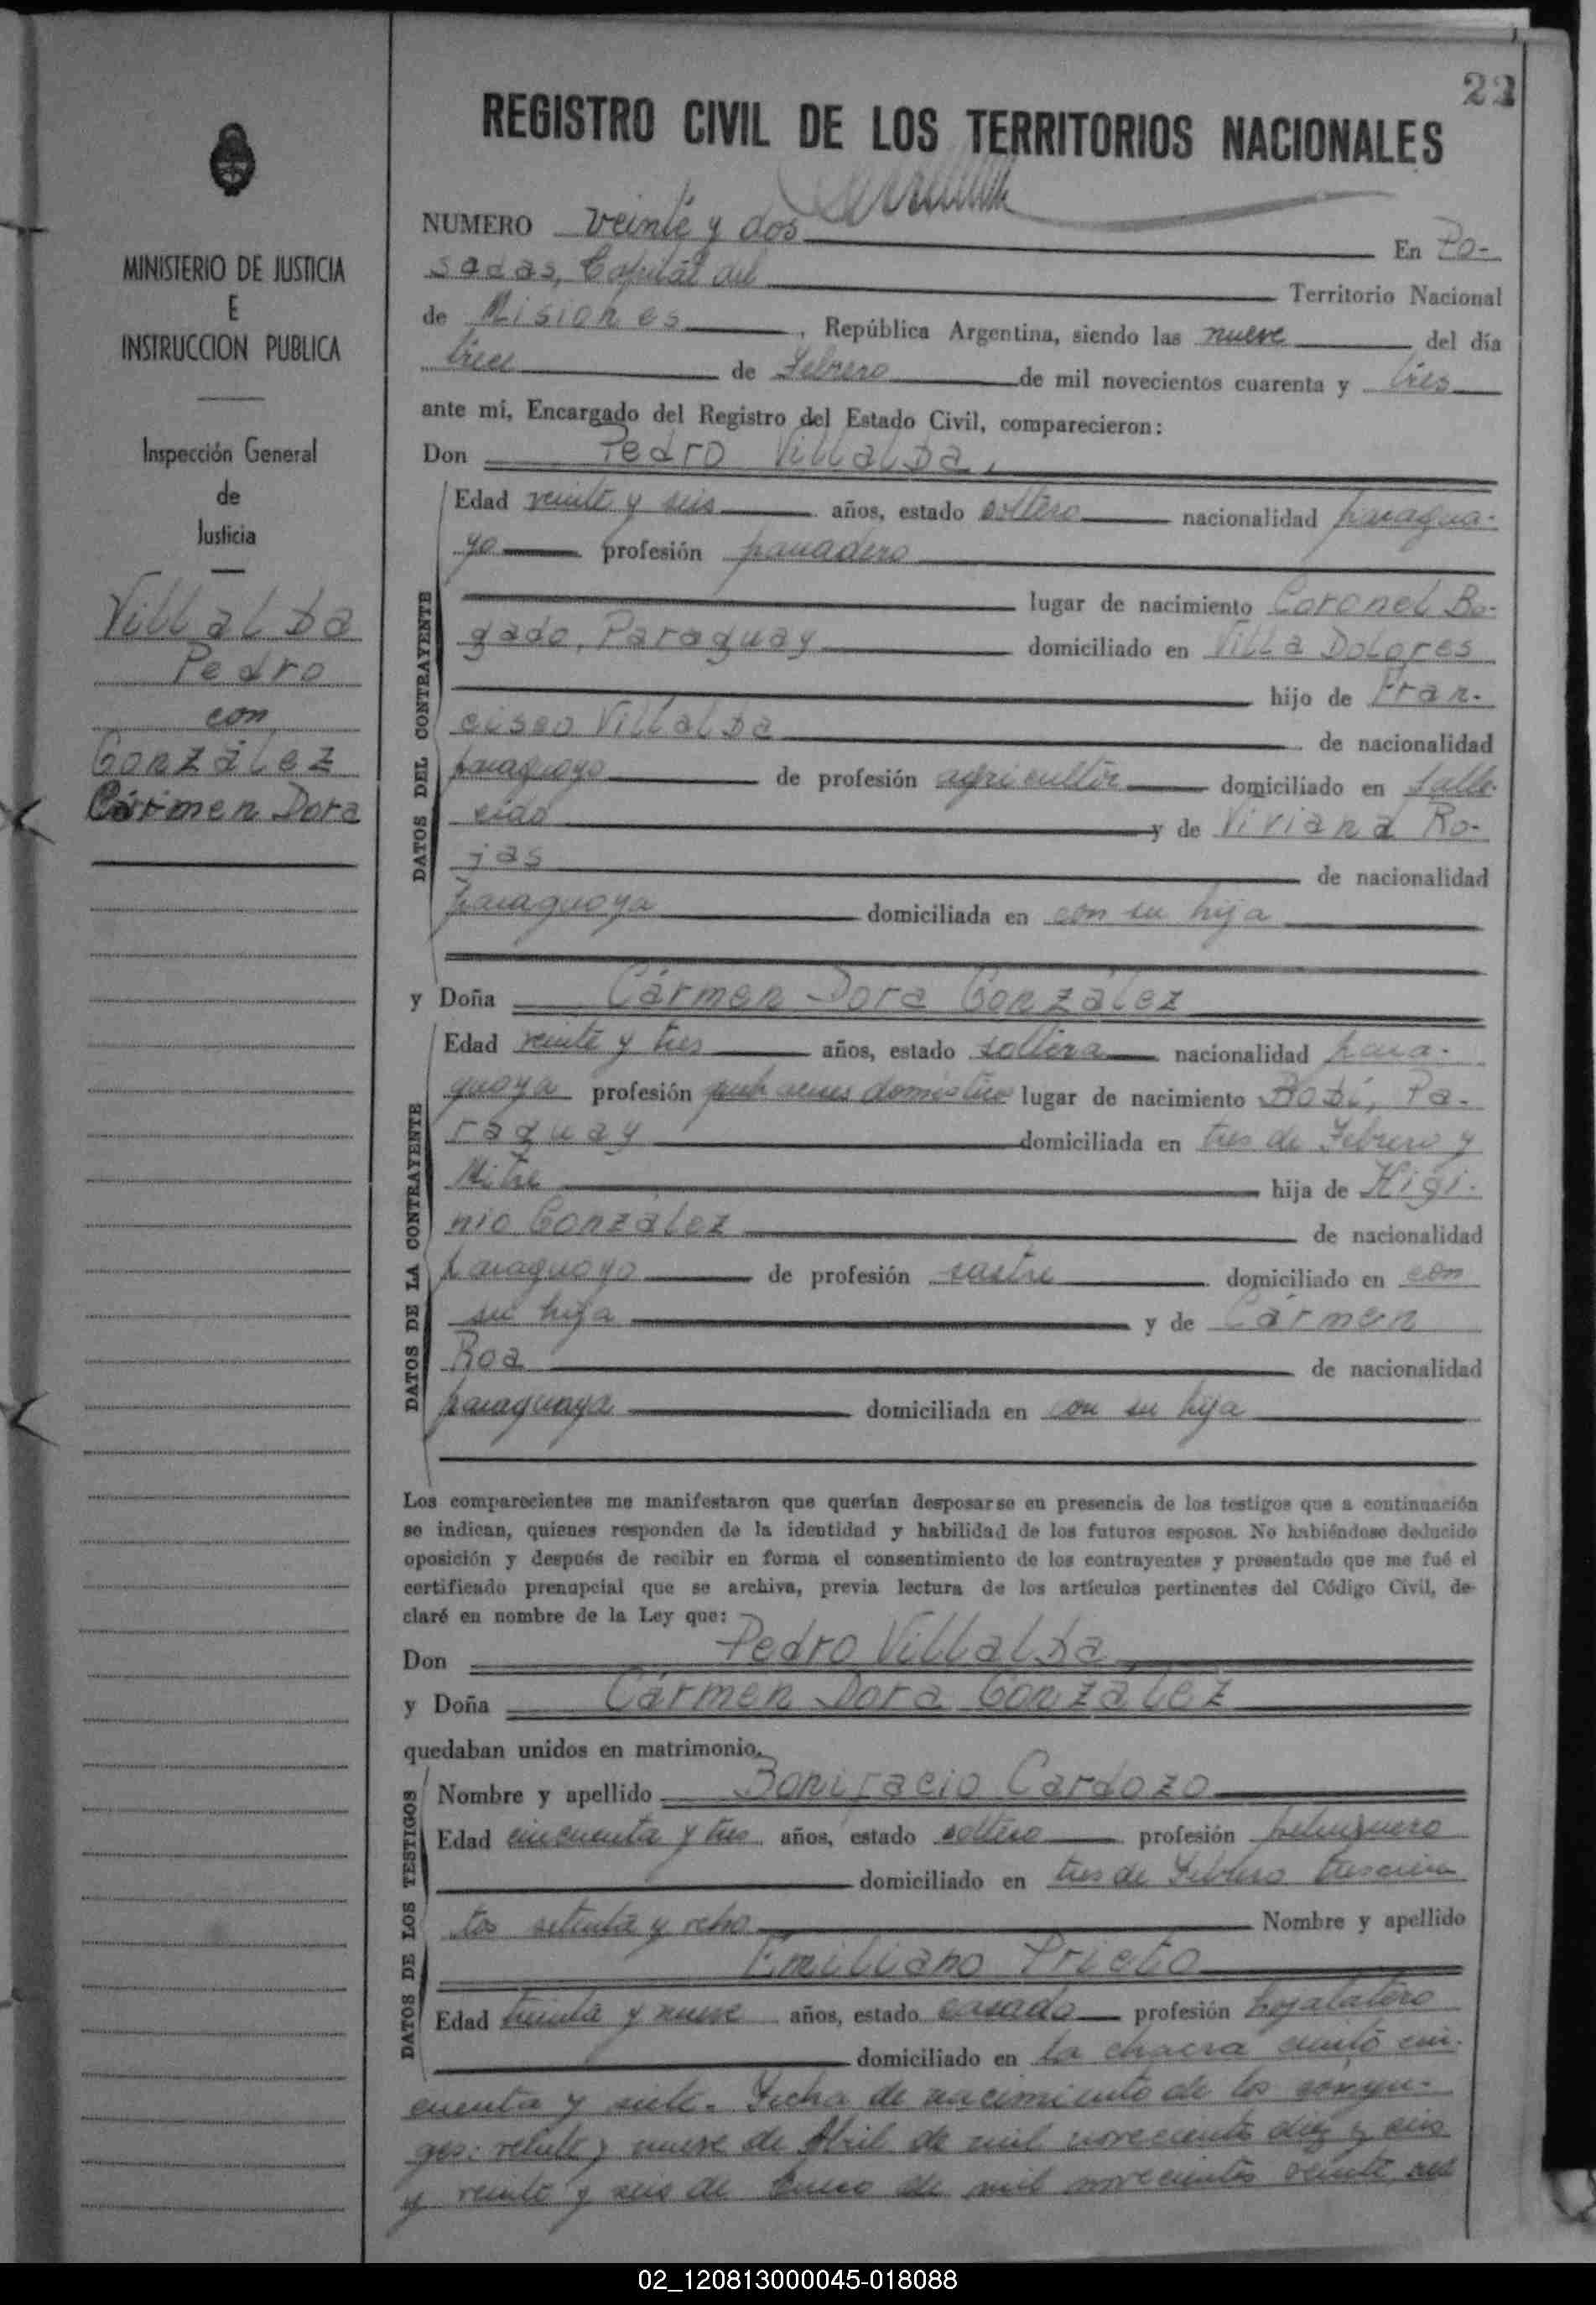 22
REGISTRO CIVIL DE LOS TERRITORIOS NACIONALES
NUMERO veinte y dos En Po-
sadas, Capital del Territorio Nacional
de Misiones, República Argentina, siendo las nueve del día
trece de Febrero de mil novecientos cuarenta y tres
ante mí, Encargado del Registro del Estado Civil, comparecieron:
Don Pedro Villalba,
Edad veinte y seis años, estado soltero nacionalidad paragua-
yo profesión panadero
lugar de nacimiento Coronel Bo-
gado, Paraguay domiciliado en Villa Dolores
hijo de Fran-
cisco Villalba de nacionalidad
paraguayo de profesión agricultor domiciliado en falle-
cido y de Viviana Ro-
jas de nacionalidad
paraguaya domiciliada en con su hija
DATOS DEL CONTRAYENTE
y Doña Cármen Dora González
Edad veinte y tres años, estado soltera nacionalidad para-
guaya profesión domestico lugar de nacimiento Bobí, Pa-
raguay domiciliada en tres de Febrero y
Mitre hija de Higi-
nio González de nacionalidad
paraguayo de profesión sastre domiciliado en con
su hija y de Cármen
Roa de nacionalidad
paraguaya domiciliada en con su hija
DATOS DE LA CONTRAYENTE
Los comparecientes me manifestaron que querían desposarse en presencia de los testigos que a continuación
se indican, quienes responden de la identidad y habilidad de los futuros esposos. No habiéndose deducido
oposición y después de recibir en forma el consentimiento de los contrayentes y presentado que me fué el
certificado prenupcial que se archiva, previa lectura de los artículos pertinentes del Código Civil, de-
claré en nombre de la Ley que:
Don Pedro Villalba
y Doña Cármen Dora González
quedaban unidos en matrimonio.
Nombre y apellido Bonifacio Cardozo
Edad cincuenta y tres años, estado soltero profesión peluquero
domiciliado en tres de Febrero trescien
tos setenta y ocho Nombre y apellido
Emiliano Prieto
Edad treinta y nueve años, estado casado profesión hojalatero
domiciliado en la chacra ciento cin-
cuenta y siete. Fecha de nacimiento de los cónyu-
ges: veinte y nueve de Abril de mil novecientos diez y seis
y veinte y seis de Enero de mil novecientos veinte
DATOS DE LOS TESTIGOS
MINISTERIO DE JUSTICIA
E
INSTRUCCION PUBLICA
Inspección General
de
Justicia
Villalba
Pedro
con
González
Cármen Dora
02_120813000045-018088